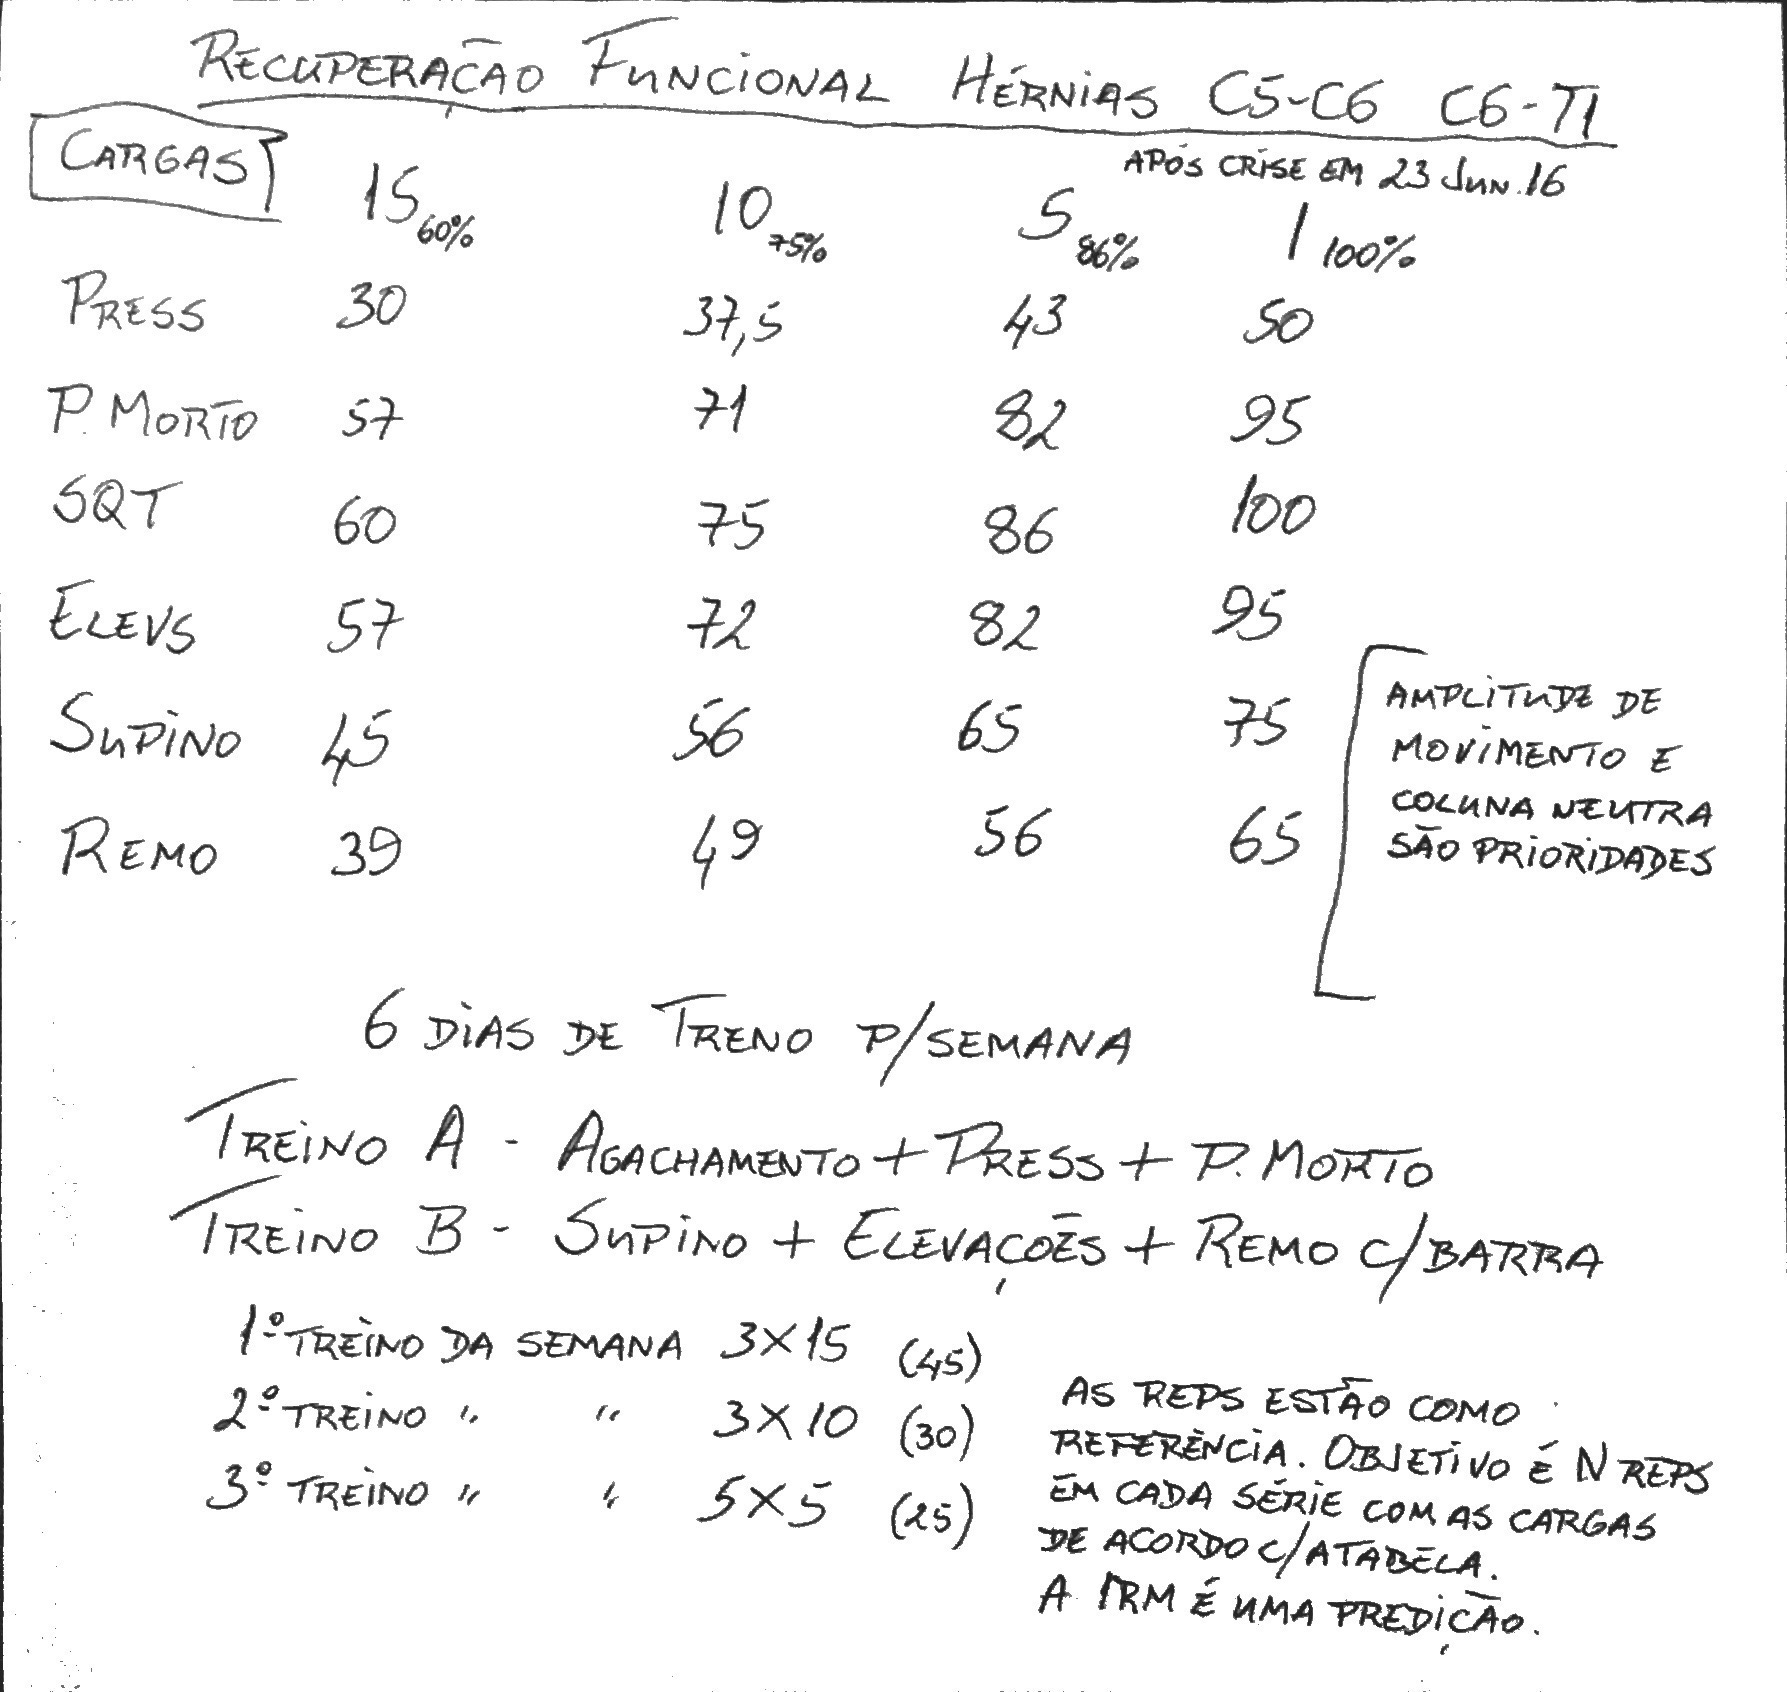 RECUPERAÇÃO FUNCIONAL HÉRNIAS C5-C6 C6-T1
APÓS CRISE EM 23 JUN.16
CARGAS 15 60% 10 75% 5 86% 1 100%
PRESS 30 37,5 43 50
P. MORTO 57 71 82 95
SQT 60 75 86 100
ELEVS 57 72 82 95
SUPINO 45 56 65 75
REMO 39 49 56 65
AMPLITUDE DE
MOVIMENTO E
COLUNA NEUTRA
SÃO PRIORIDADES
6 DIAS DE TRENO P/SEMANA
TREINO A - AGACHAMENTO + PRESS + P. MORTO
TREINO B - SUPINO + ELEVAÇÕES + REMO C/BARRA
1º TREINO DA SEMANA 3X15 (45)
2º TREINO " " 3X10 (30)
3º TREINO " " 5X5 (25)
AS REPS ESTÃO COMO
REFERÊNCIA. OBJETIVO É N REPS
EM CADA SÉRIE COM AS CARGAS
DE ACORDO C/A TABELA.
A 1RM É UMA PREDIÇÃO.